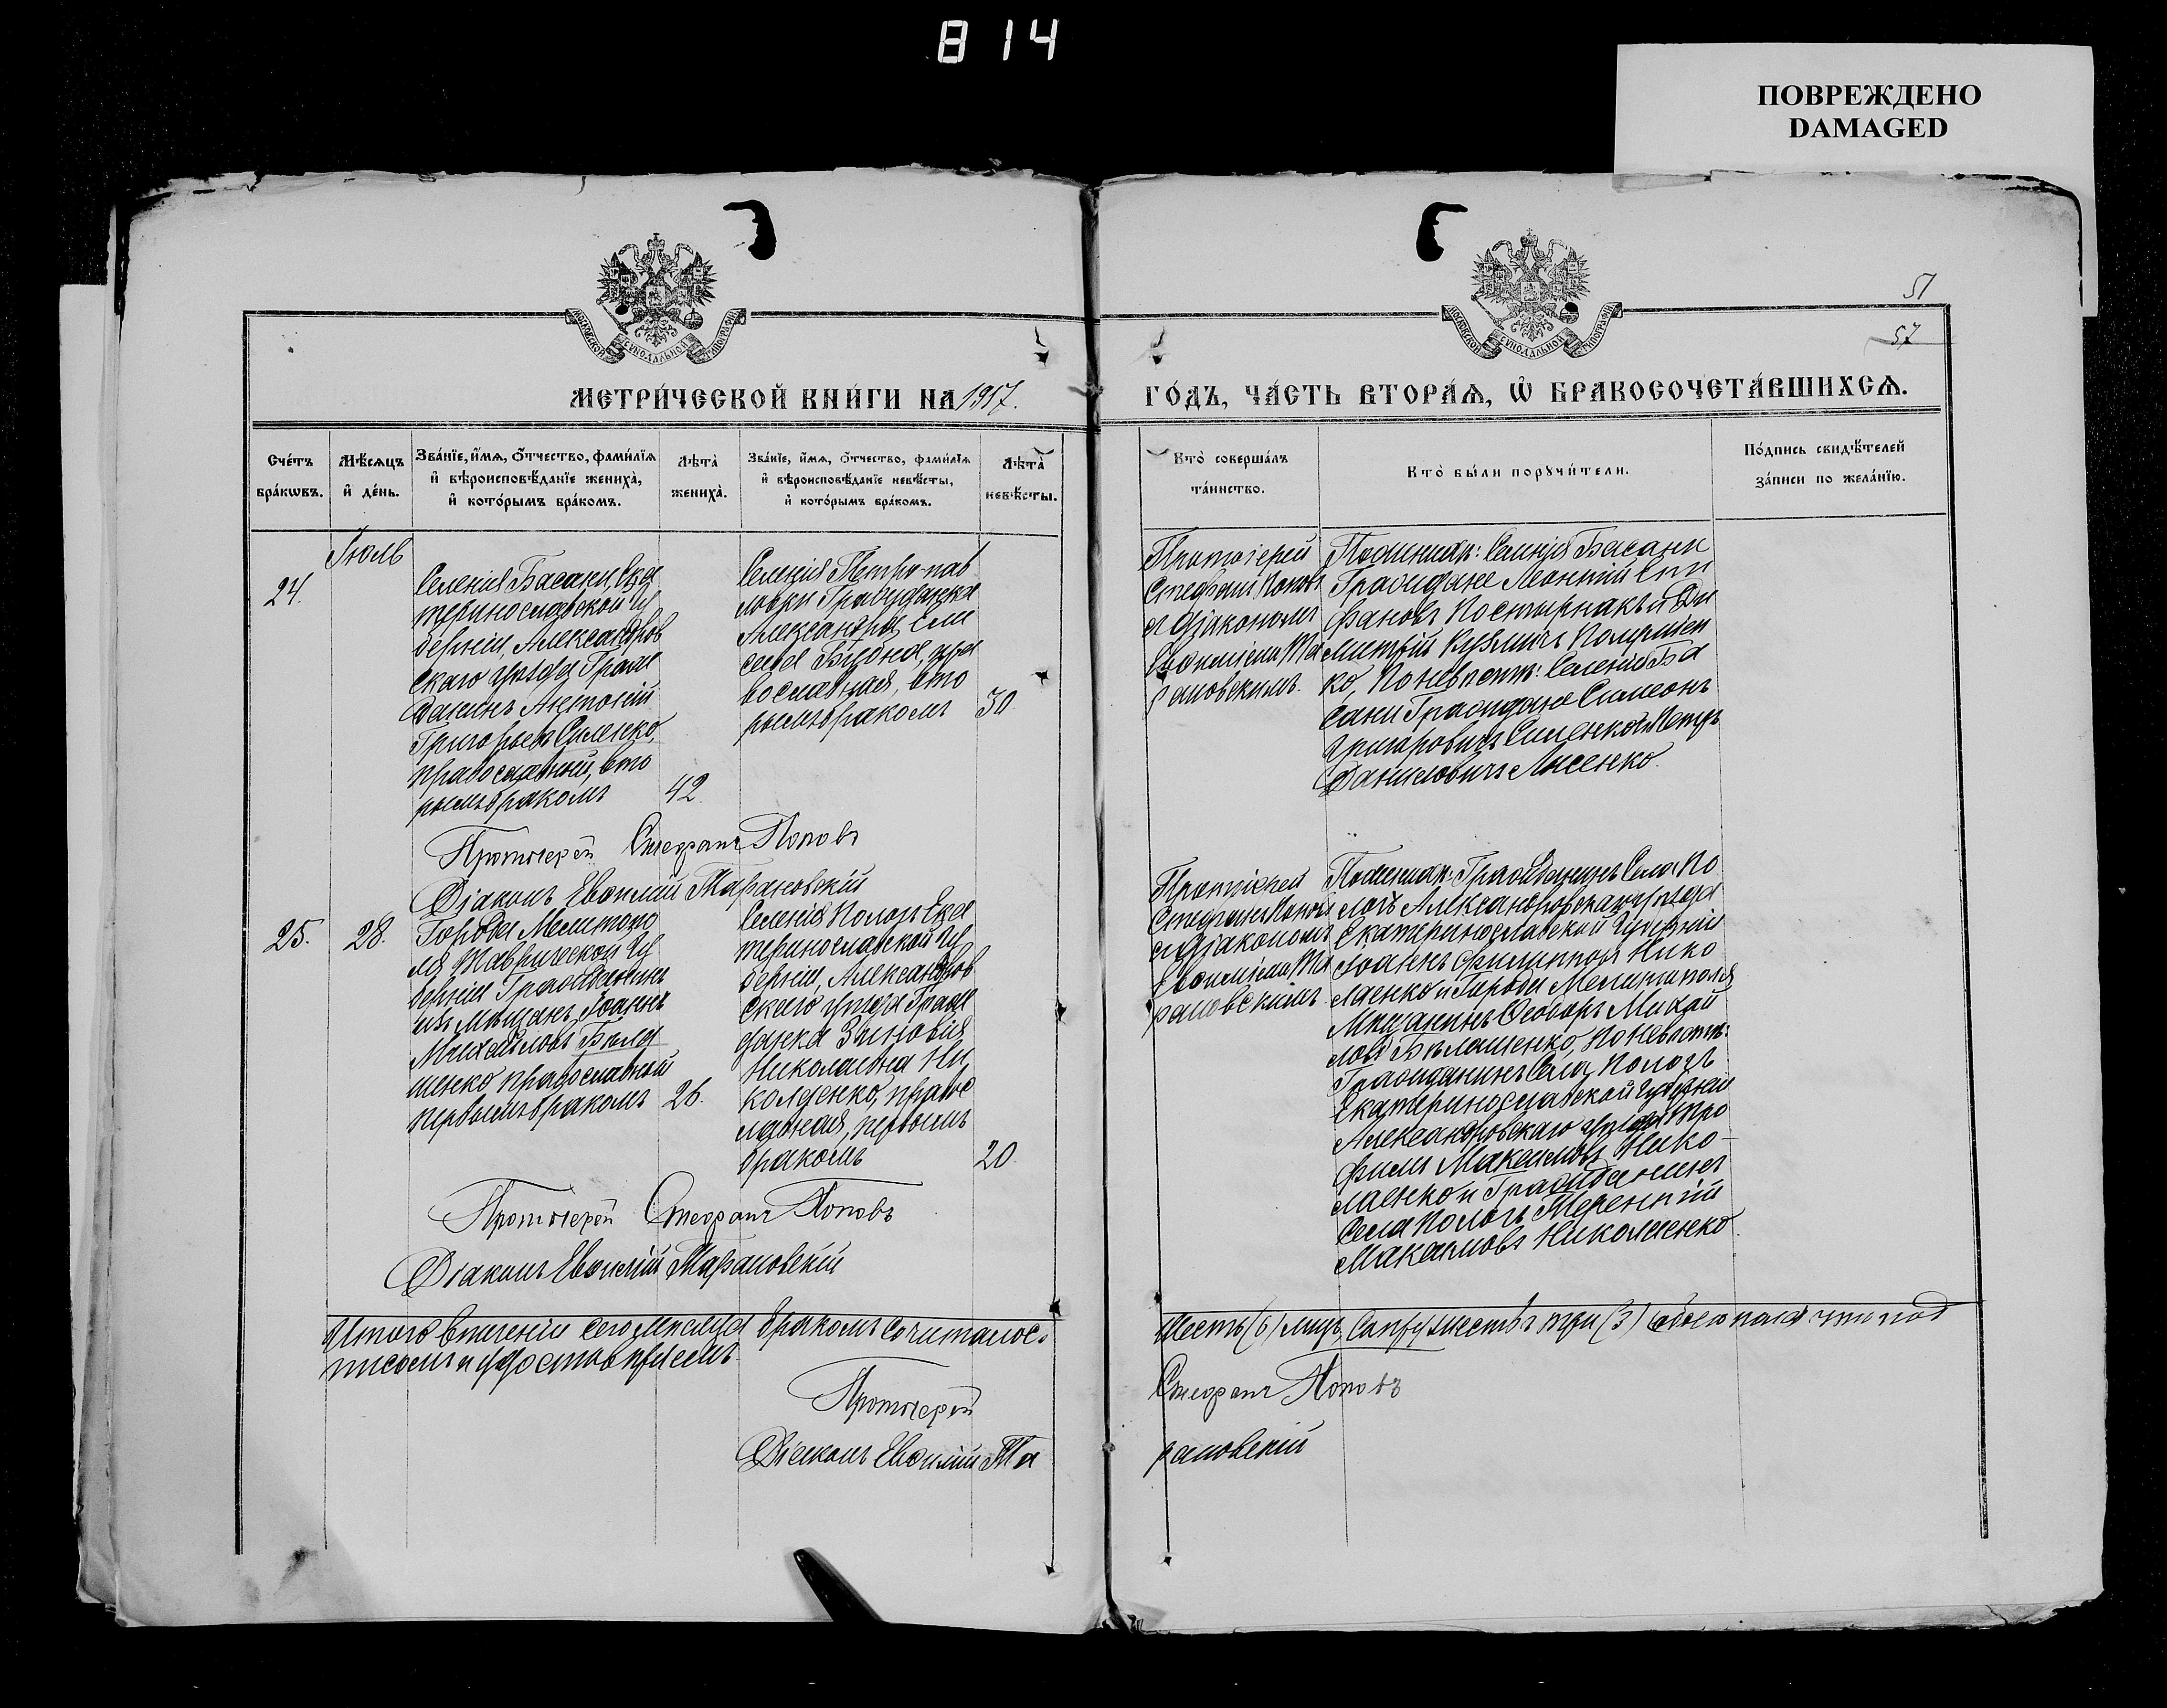 814
ПОВРЕЖДЕНО
DAMAGED
МОСКОВСКОЙ СѴНОДАЛЬНОЙ ТИПОГРАФІИ
МОСКОВСКОЙ СѴНОДАЛЬНОЙ ТИПОГРАФІИ
51
57
МЕТРИ́ЧЕСКОЙ КНИ́ГИ НА 1917.
ГО́ДЪ, ЧА́СТЬ ВТОРА́Ѧ, Ѡ҆ БРАКОСОЧЕТА́ВШИХСѦ.
Сче́тъ
бра́кѡвъ.
Мѣ́сяцъ
и҆ де́нь.
Зва́нїе, и҆́мѧ, ѻ҆́тчество, фами́лїѧ
и҆ вѣроисповѣ́данїе жениха̀,
и҆ кото́рымъ бра́комъ.
Лѣта̀
жениха̀.
Зва́нїе, и҆́мѧ, ѻ҆́тчество, фами́лїѧ
и҆ вѣроисповѣ́данїе невѣ́сты,
и҆ кото́рымъ бра́комъ.
Лѣта̀
невѣ́сты.
Кто̀ соверша́лъ
та́инство.
Кто̀ бы́ли порꙋчи́тели.
По́дпись свидѣ́телей
за́писи по жела́нїю.
Іюль
24.
Селенія Басани, Ека
теринославской Гу
берніи, Александров
скаго уѣзда Граж
данинъ Антоній
Григорьевъ Силенко,
православный, вто
рымъ бракомъ
42.
Селенія Петро-пав
ловки Гражданка
Александра
православная, вто
рымъ бракомъ
30
Протоіерей
Стефанъ Поповъ
съ діакономъ
Евѳиміемъ Та
рановскимъ.
По женихѣ: Селенія Басани
Граждане Леонтій Епи
фановъ Постырнакъ и Ди
митрій
ко, По невѣстѣ: Селенія Ба
сани Граждане Симеонъ
Григоровичъ Силенко и Петръ
Даниловичъ Лисенко.
Протоіерей Стефанъ Поповъ
Діаконъ Евѳимій Тарановскій
25.
28.
Города Мелитопо
ля Таврической Гу
берніи Гражданинъ
изъ Мѣщанъ Іоаннъ
Михайловъ Бѣла
шенко православный
первымъ бракомъ
26.
Селенія Пологъ Ека
теринославской Гу
берніи, Александров
скаго уѣзда Граж
данка Зиновія
Николаевна Ни
колаенко, правос
лавная, первымъ
бракомъ
20.
Протоіерей
Стефанъ Поповъ
съ діакономъ
Евѳиміемъ Та
рановскимъ.
По женихѣ: Гражданинъ Села По
логъ Александровскаго уѣзда
Екатеринославской Губерніи
Іоаннъ Филипповъ Нико
лаенко и Города Мелитополя
Мѣщанинъ Ѳеодоръ Михай
ловъ Бѣлашенко, По невѣстѣ:
Гражданинъ Села Пологъ
Екатеринославской Губерніи
Александровскаго уѣзда Тро
фимъ Максимовъ Нико-
лаенко и Гражданинъ
Села Пологъ Терентій
Максимовъ Николаенко.
Протоіерей Стефанъ Поповъ
Діаконъ Евѳимій Тарановскій
Итого втеченіи сего мѣсяца бракомъ сочиталось
Шесть (6) лицъ, Супружествъ три (3) обоего пола что под
писомъ и удостовѣряемъ
Протоіерей Стефанъ Поповъ
Діаконъ Евѳимій Та
рановскій